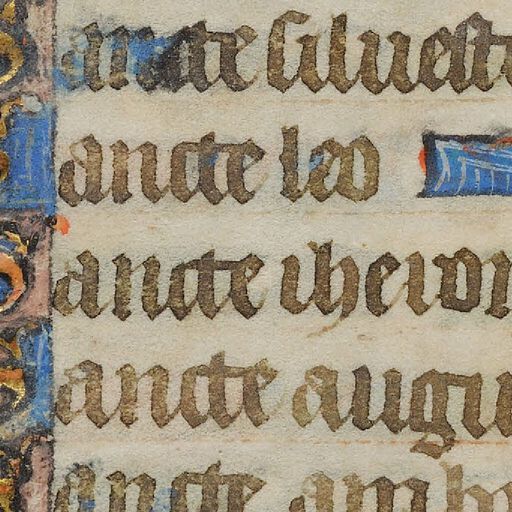 ancte silueste
ancte leo
ancte iheron
ancte augu
ancte amb